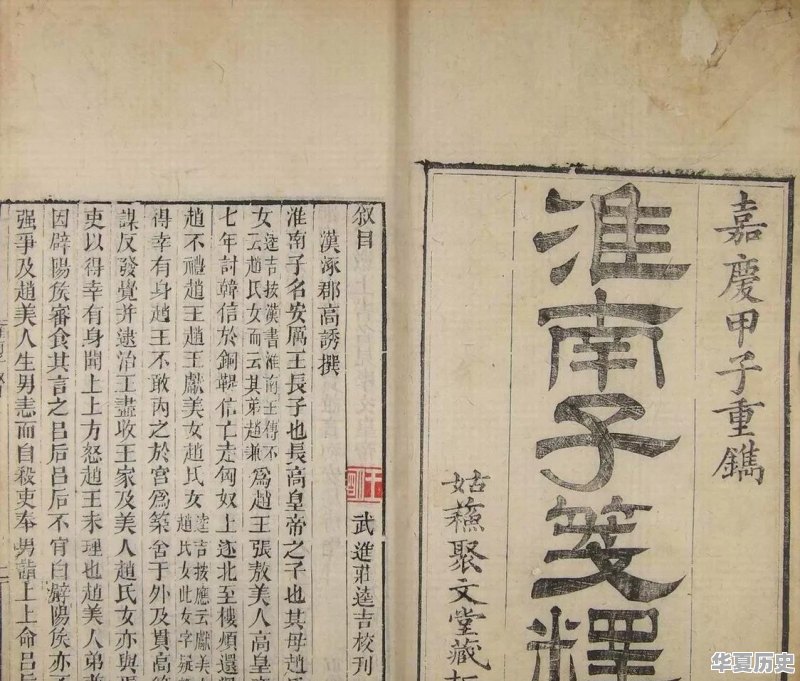 嘉慶甲子重鐫
淮南子箋釋
姑蘇聚文堂藏
叙目
漢涿郡高誘撰
武進莊逵吉校刊
淮南子名安厲王長子也長高皇帝之子也其母趙氏
女
逵吉按漢書淮南王傳不
云趙氏女而云其弟趙兼
為趙王張敖美人高皇
七年討韓信於銅鞮信亡走匈奴上遂北至樓煩還
趙不禮趙王趙王獻美女趙氏女
逵吉按應云獻美
趙氏女此女字
得幸有身趙王不敢內之於宮為築舍于外及貫高
謀反發覺并逮治王盡收王家及美人趙氏女亦與
吏以得幸有身聞上上方怒趙王未理也趙美人弟
因辟陽侯審食其言之吕后吕后不肯白辟陽侯亦
强爭及趙美人生男恚而自殺吏奉男詣上上命吕
华夏历史